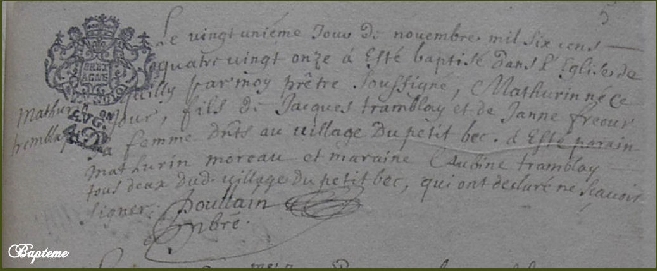 5
Le vingt unième Jour de novembre mil six cens
quatre vingt onze à Esté baptisé dans l'Eglise de
par moy prêtre soussigné, Mathurin né ce
Mathurin
tremblay
Jour, fils de Jacques tramblay et de Janne freour
sa femme dmts au village Du petit bec. a Esté parain
mathurin moreau et maraine tramblay
tous deux dud. village du petit bec, qui ont declaré ne scavoir
signer. Poullain
Bapteme